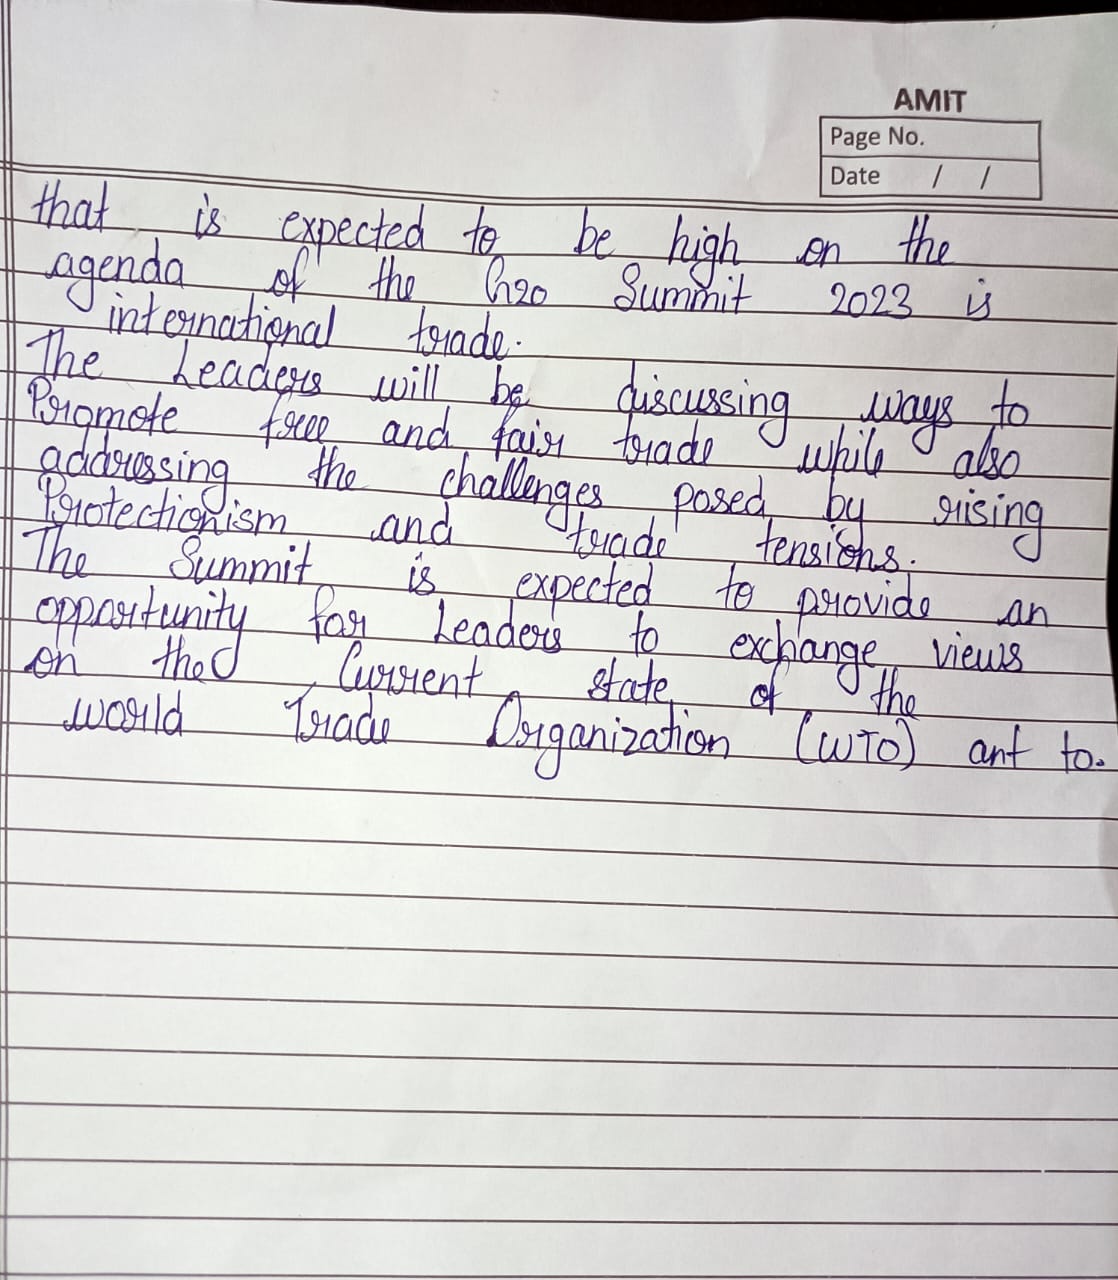 AMIT
Page No.
Date / /
that is expected to be high on the
agenda of the G20 Summit 2023 is
international trade.
The Leaders will be discussing ways to
Promote free and fair trade while also
addressing the challenges posed by rising
Protectionism and trade tensions.
The Summit is expected to provide an
opportunity for Leaders to exchange views
on the Current state of the
world Trade Organization (WTO) ant to.